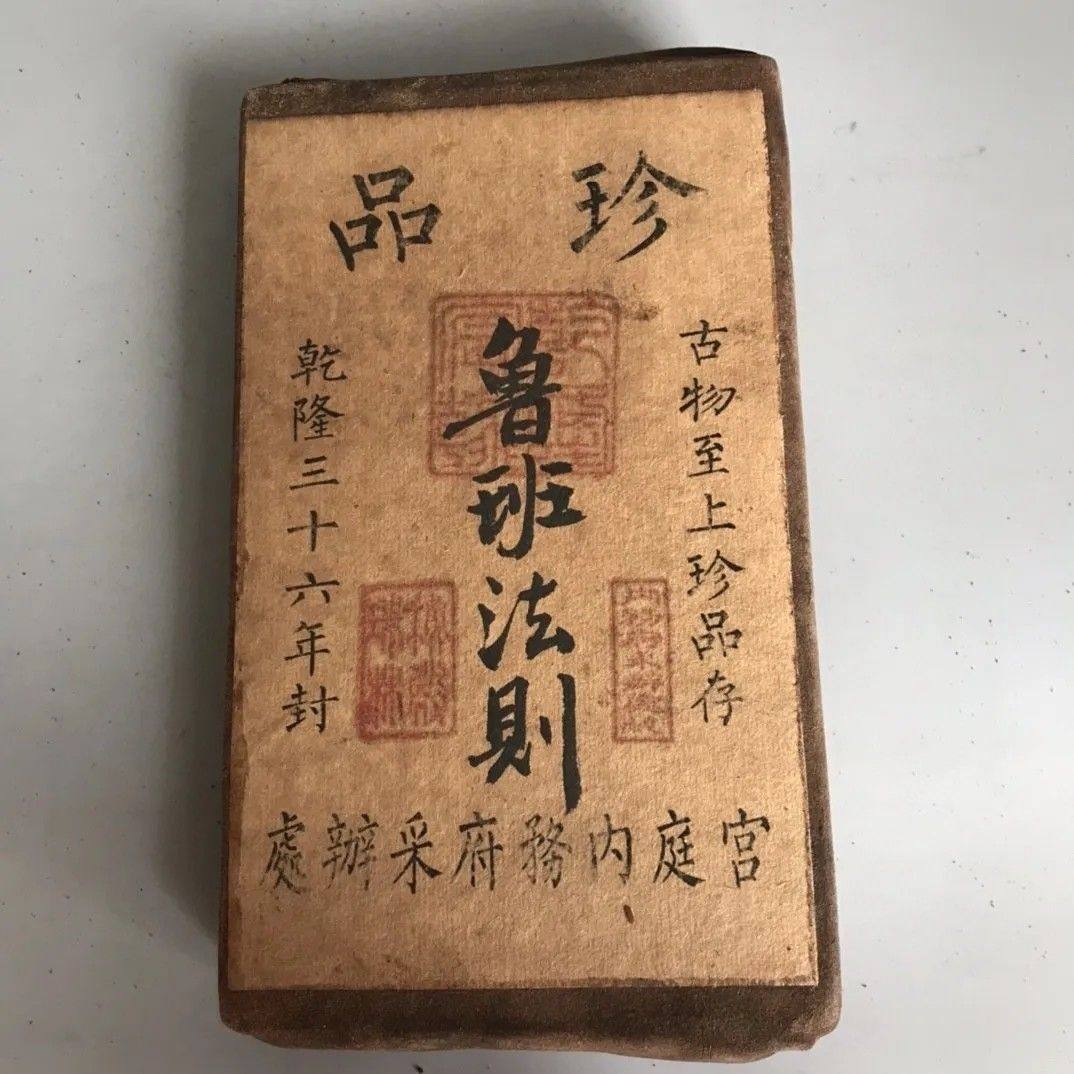 珍品
古物至上珍品存
魯班法則
乾隆三十六年封
宮庭內務府采辦處